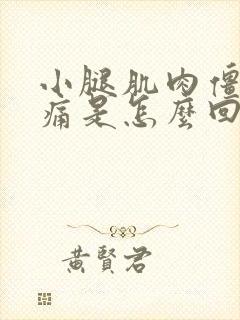 小腿肌肉僵
痛是怎麼回
黃賢君